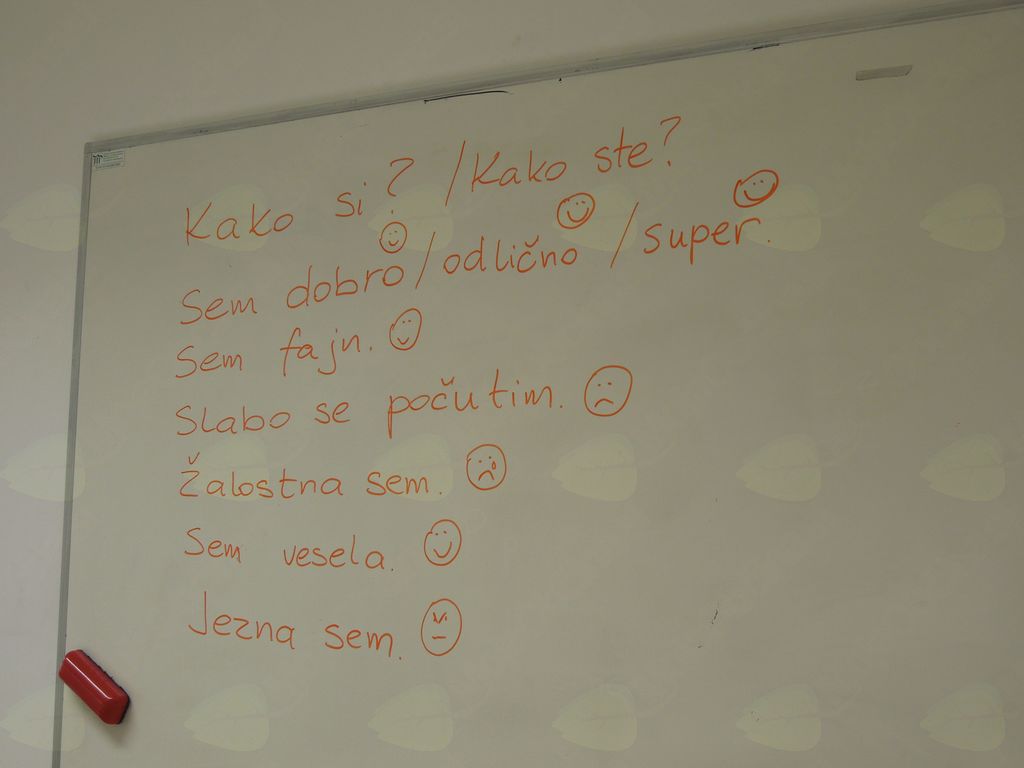 Kako si? / Kako ste?
Sem dobro / odlično / super.
Sem fajn.
Slabo se počutim.
Žalostna sem.
Sem vesela.
Jezna sem.